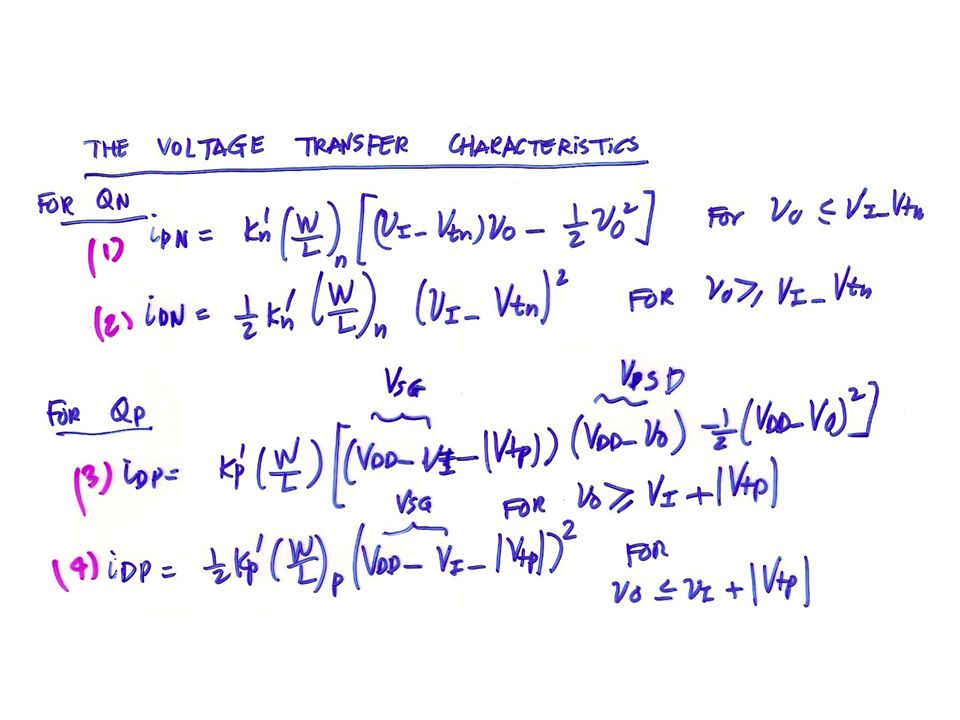 THE VOLTAGE TRANSFER CHARACTERISTICS
FOR QN
(1) iDN = Kn' (W/L)n [(VI - Vtn) VO - 1/2 VO²] FOR VO ≤ VI - Vtn
(2) iDN = 1/2 Kn' (W/L)n (VI - Vtn)² FOR VO ≥ VI - Vtn
VSG VSD
FOR QP
(3) iDP = Kp' (W/L) [(VDD - VI - |Vtp|) (VDD - VO) - 1/2 (VDD - VO)²]
VSG FOR VO ≥ VI + |Vtp|
(4) iDP = 1/2 Kp' (W/L)p (VDD - VI - |Vtp|)² FOR
VO ≤ VI + |Vtp|